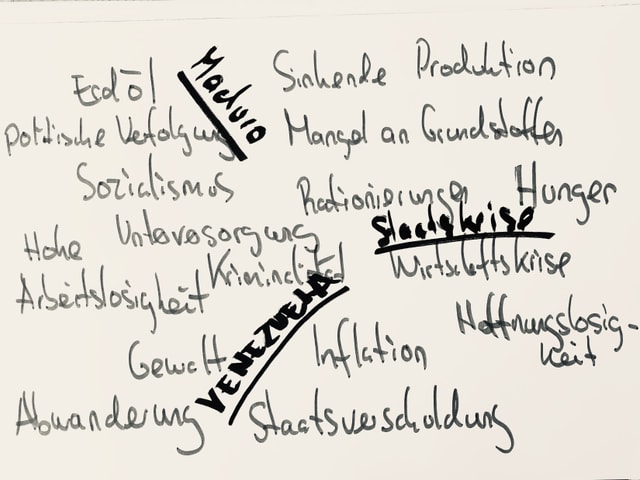 Erdöl
Maduro
Sinkende Produktion
politische Verfolgung
Mangel an Grundstoffen
Sozialismus
Rationierungen
Hunger
Staatskrise
Unterversorgung
Hohe
Arbeitslosigkeit
Kriminalität
Wirtschaftskrise
VENEZUELA
Hoffnungslosig-
keit
Gewalt
Inflation
Abwanderung
Staatsverschuldung